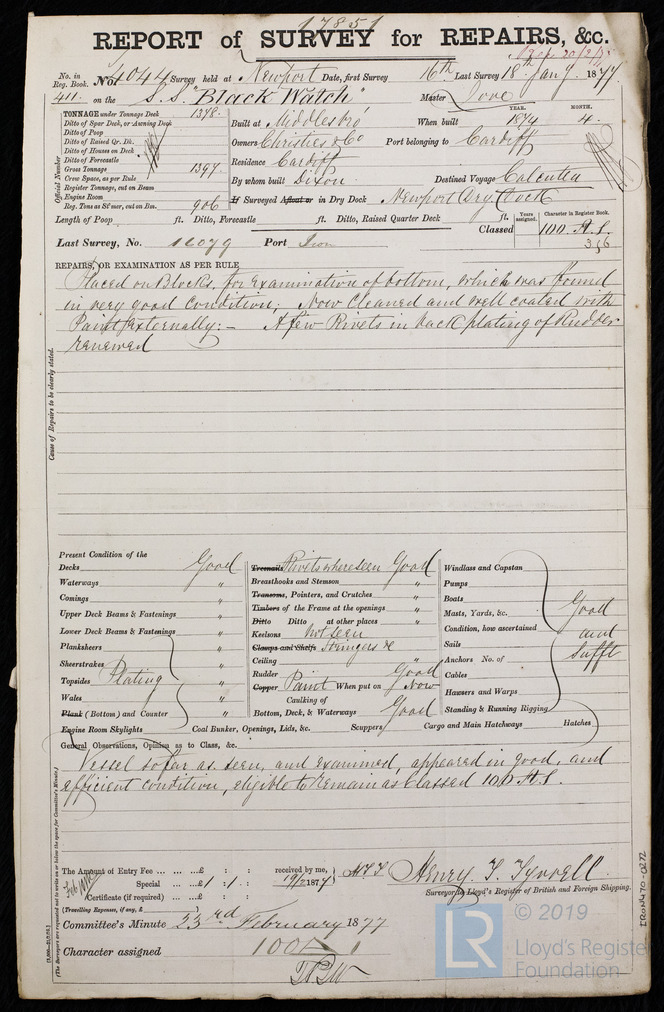 17851
REPORT of SURVEY for REPAIRS, &c.
No. in Reg. Book. No. 4044 Survey held at Newport Date, first Survey 16th Last Survey 18th Jany 1877
411. on the S.S. "Black Watch" Master Jove
TONNAGE under Tonnage Deck 1378.
Ditto of Spar Deck, or Awning Deck
Ditto of Poop
Ditto of Raised Qr. Dk.
Ditto of Houses on Deck
Ditto of Forecastle
Gross Tonnage 1397
Crew Space, as per Rule
Register Tonnage, cut on Beam
Engine Room
Reg. Tons as St'mer, cut on Bm. 906
Official Number
Built at Middlesbro' When built YEAR. 1874 MONTH. 4.
Owners Christies & Co Port belonging to Cardiff
Residence Cardiff
By whom built Dixon Destined Voyage Calcutta
If Surveyed Afloat or in Dry Dock Newport Dry Dock
Length of Poop ft. Ditto, Forecastle ft. Ditto, Raised Quarter Deck ft.
Classed Years assigned. Character in Register Book. 100 A.1.
Last Survey, No. 16079 Port Iron
REPAIRS, OR EXAMINATION AS PER RULE
Placed on Blocks, for Examination of bottom, which was found
in very good Condition; Now Cleaned and well coated with
Paint Externally:- A few Rivets in back plating of Rudder
renewed
Cause of Repairs to be clearly stated.
Present Condition of the
Decks Good
Waterways "
Comings "
Upper Deck Beams & Fastenings "
Lower Deck Beams & Fastenings "
Planksheers "
Sheerstrakes "
Topsides Plating "
Wales "
Plank (Bottom) and Counter "
Treenails Rivets where seen Good
Breasthooks and Stemson "
Transoms, Pointers, and Crutches "
Timbers of the Frame at the openings "
Ditto Ditto at other places "
Keelsons Not seen
Clamps and Shelfs Stringers &c
Ceiling
Rudder Good
Copper Paint When put on Now
Caulking of
Bottom, Deck, & Waterways Good
Windlass and Capstan
Pumps
Boats
Masts, Yards, &c.
Condition, how ascertained
Sails
Anchors No. of
Cables
Hawsers and Warps
Standing & Running Rigging
Good
and
Sufft
Engine Room Skylights Coal Bunker, Openings, Lids, &c. Scuppers Cargo and Main Hatchways Hatches
General Observations, Opinion as to Class, &c.
Vessel so far as seen, and examined, appeared in good, and
efficient condition, eligible to remain as Classed 100 A.1.
(The Surveyors are requested not to write on or below the space for Committee's Minute.)
The Amount of Entry Fee £ : : received by me,
Special £1 : 1 : 19/2/1877 H.T.T. Henry T. Tyrrell
Certificate (if required) £ : :
Surveyor to Lloyd's Register of British and Foreign Shipping.
(Travelling Expenses, if any, £ )
Committee's Minute 23rd February 1877
Character assigned 100A1
IRON470-0272
LR © 2019
Lloyd's Register
Foundation